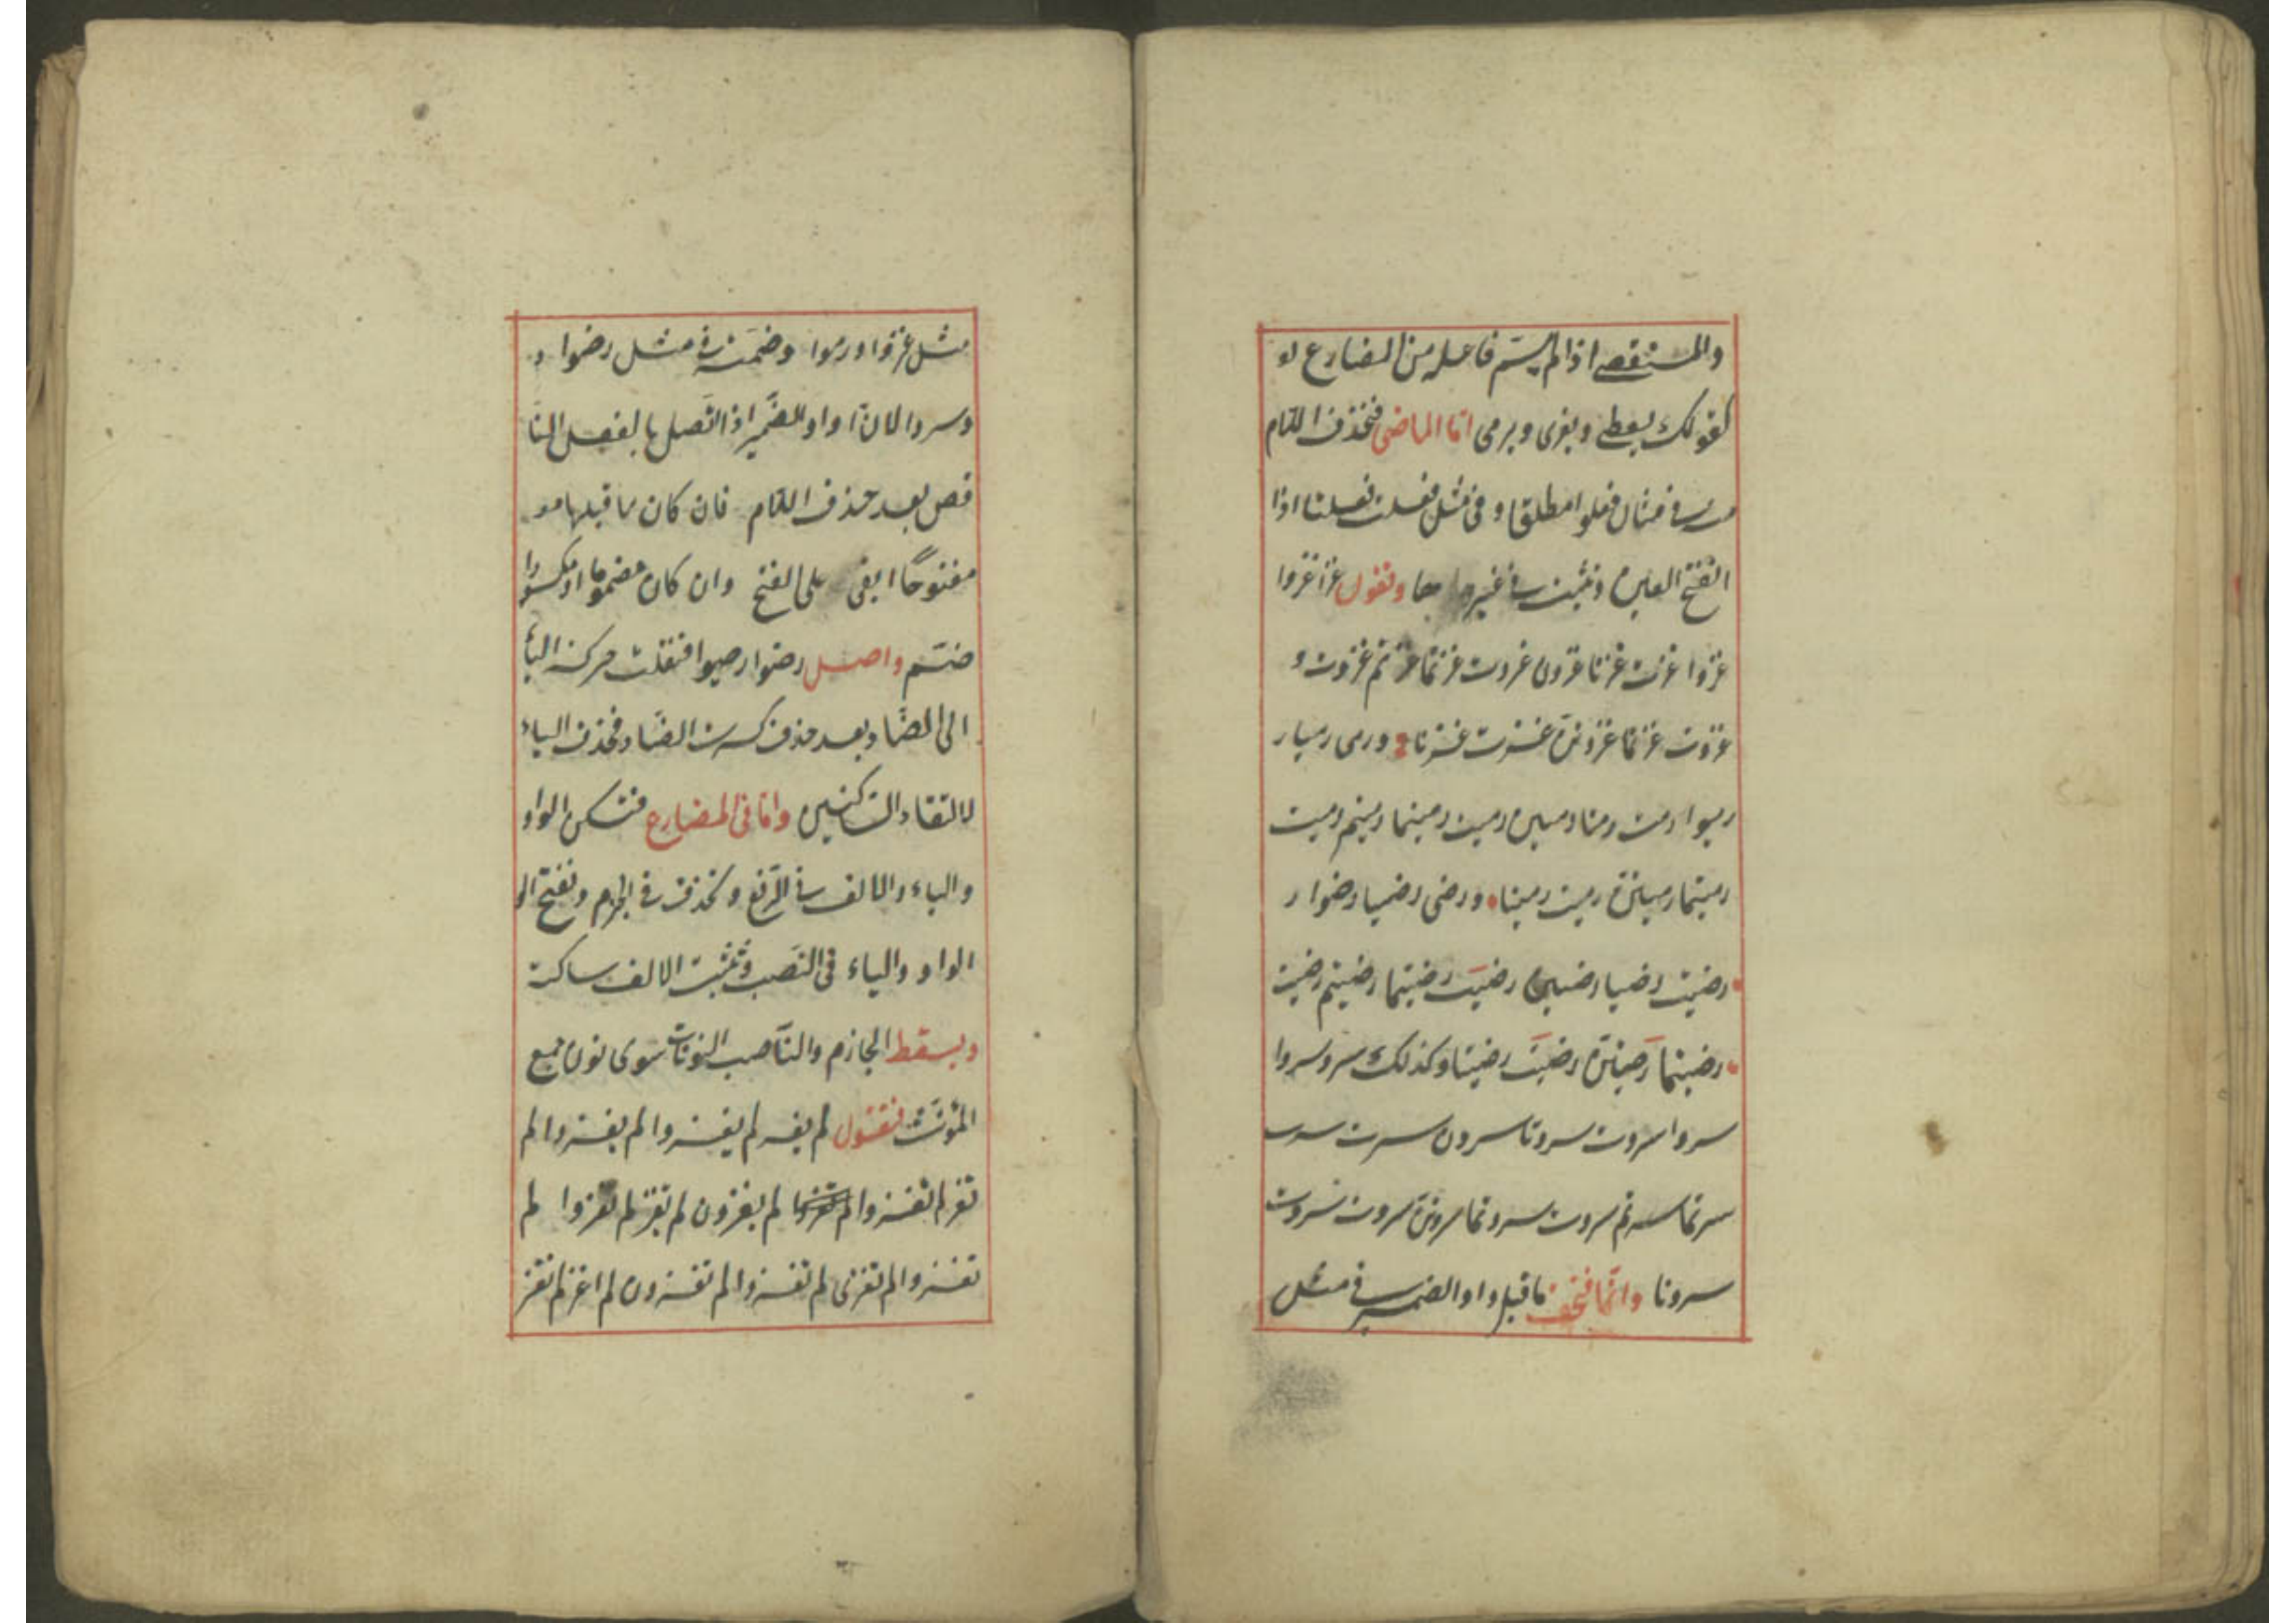 والمستقصى اذا لم يسم فاعله من المضارع له
كقولك يعطى ويغزى ويرمى امّا الماضى فتحذف اللام
فى مثال فعلوا مطلقا وفى مثل فعلت فعلتا اذا
انفتح العين وتثبت فى غيرها وتقول غزا غزوا
غزوا غزت غزتا غزون غزوت غزتما غزتم غزوت و
غزوت غزتما غزوتنّ غزوت غزونا ورمى رميا ر
رميوا رمت رمتا رمين رميت رميتما رميتم رميت
رميتما رميتنّ رميت رمينا ورضى رضيا رضوا ر
رضيت رضيا رضين رضيت رضيتما رضيتم رضيت
رضيتما رضيتنّ رضيت رضينا وكذلك سرو سروا
سروا سروت سروتا سرون سرت
سرتما تم سروت سروتما سروتنّ سروت سروت
سرونا وانّما فتحت ما قبل واو الضمير فى مثل
مثل غزوا ورموا وضمت فى مثل رضوا و
وسروا لان واو الضمير اذا اتّصل بالفعل النا
قص بعد حذف اللام فان كان ما قبلها مو
مفتوحًا ابقى على الفتح وان كان مضموما او مكسورا
ضمّ واصل رضوا رضيوا فنقلت حركة اليأ
الى الضّاد بعد حذف كسرت الضّاد وحذف الياء
لالتقاء الساكنين وامّا فى المضارع فتسكن الواو
والياء والالف فى الرّفع وتحذف فى الجزم وتفتح الو
الواو والياء فى النّصب وتثبت الالف ساكنة
ويسقط الجازم والنّاصب النونات سوى نون جمع
المؤنّث فتقول لم يغز لم يغزوا لم يغزوا لم
تغز لم تغزوا لم تغزوا لم يغزون لم تغز لم تغزوا لم
تغزوا لم تغزى لم تغزوا لم تغزون لم اغز لم نغز